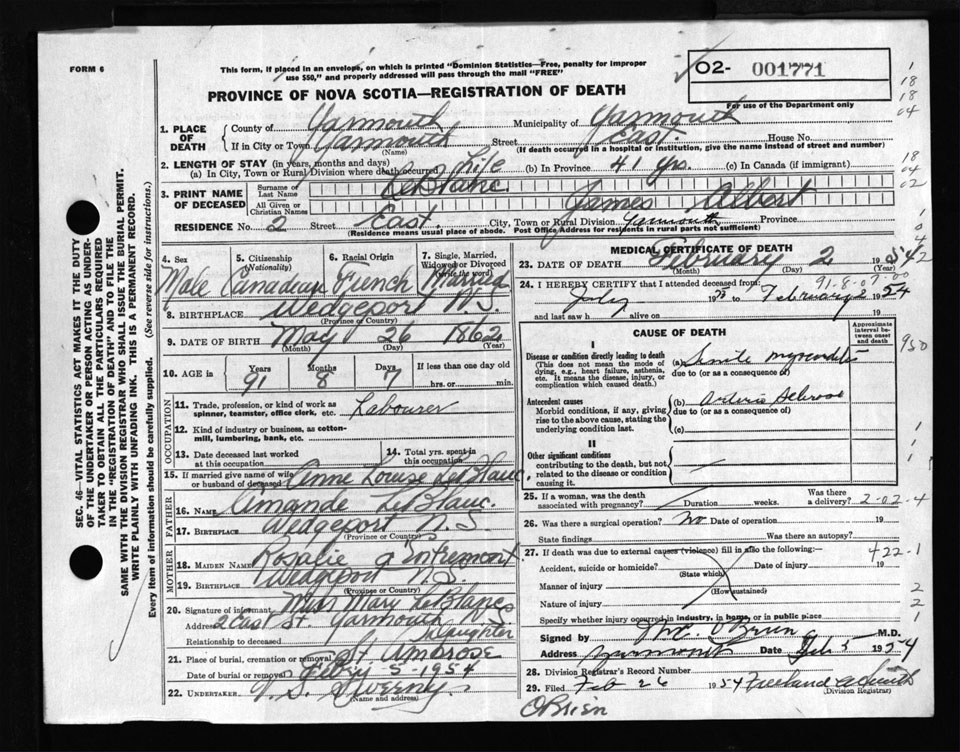 FORM 6
This form, if placed in an envelope, on which is printed "Dominion Statistics—Free, penalty for improper
use $50," and properly addressed will pass through the mail "FREE"
O2- 001771
For use of the Department only
PROVINCE OF NOVA SCOTIA—REGISTRATION OF DEATH
1. PLACE OF DEATH
County of Yarmouth Municipality of Yarmouth
If in City or Town Yarmouth Street East. House No.
(Name) (If death occurred in a hospital or institution, give the name instead of street and number)
2. LENGTH OF STAY (in years, months and days)
(a) In City, Town or Rural Division where death occurred Life (b) In Province 41 yrs. (c) In Canada (if immigrant)
3. PRINT NAME OF DECEASED
Surname or Last Name LeBlanc.
All Given or Christian Names James Albert
RESIDENCE No. 2 Street East. City, Town or Rural Division Yarmouth Province
(Residence means usual place of abode. Post Office Address for residents in rural parts not sufficient)
4. Sex Male
5. Citizenship (Nationality) Canadian
6. Racial Origin French
7. Single, Married, Widowed or Divorced (Write the word) Married
8. BIRTHPLACE Wedgeport N.S.
(Province or Country)
9. DATE OF BIRTH May 26 1862
(Month) (Day) (Year)
10. AGE in Years 91 Months 8 Days 7 If less than one day old
hrs. or min.
OCCUPATION
11. Trade, profession, or kind of work as
spinner, teamster, office clerk, etc. Labourer
12. Kind of industry or business, as cotton-
mill, lumbering, bank, etc.
13. Date deceased last worked
at this occupation
14. Total yrs. spent in
this occupation
15. If married give name of wife
or husband of deceased Anne Louise LeBlanc
FATHER
16. Name Amande LeBlanc.
17. Birthplace Wedgeport N.S.
(Province or Country)
MOTHER
18. MAIDEN NAME Rosalie d'Entremont
19. BIRTHPLACE Wedgeport N.S.
(Province or Country)
20. Signature of informant Miss Mary LeBlanc
Address 2 East St. Yarmouth
Relationship to deceased Daughter
21. Place of burial, cremation or removal St Ambrose
Date of burial or removal Feb'y 5-1954
22. UNDERTAKER V. S. Sweeny.
(Name and address)
MEDICAL CERTIFICATE OF DEATH
23. DATE OF DEATH February 2 1954
(Month) (Day) (Year)
91-8-07-00
24. I HEREBY CERTIFY that I attended deceased from:
July 1953 to February 2 1954
and last saw h alive on 19
CAUSE OF DEATH
Approximate interval between onset and death
I
Disease or condition directly leading to death
(This does not mean the mode of
dying, e.g., heart failure, asthenia,
etc. It means the disease, injury, or
complication which caused death.)
(a) Senile myocarditis
due to (or as a consequence of)
Antecedent causes
Morbid conditions, if any, giving
rise to the above cause, stating the
underlying condition last.
(b) Arterio Sclerosis
due to (or as a consequence of)
(c)
II
Other significant conditions
contributing to the death, but not
related to the disease or condition
causing it.
25. If a woman, was the death
associated with pregnancy? Duration weeks. Was there
a delivery? 2-02-4
26. Was there a surgical operation? No Date of operation 19
State findings Was there an autopsy?
27. If death was due to external causes (violence) fill in also the following: 422-1
Accident, suicide or homicide? Date of injury 19
(State which)
Manner of injury
(How sustained)
Nature of injury
Specify whether injury occurred in industry, in home, or in public place
Signed by O'Brien M.D.
Address Yarmouth Date Feb 5 1954
28. Division Registrar's Record Number
29. Filed Feb 26 1954 Freeland A Smith
(Division Registrar)
O'Brien
SEC. 46—VITAL STATISTICS ACT MAKES IT THE DUTY
OF THE UNDERTAKER OR PERSON ACTING AS UNDER-
TAKER TO OBTAIN ALL THE PARTICULARS REQUIRED
IN THE "REGISTRATION OF DEATH" AND TO FILE THE
SAME WITH THE DIVISION REGISTRAR WHO SHALL ISSUE THE BURIAL PERMIT.
WRITE PLAINLY WITH UNFADING INK. THIS IS A PERMANENT RECORD.
Every item of information should be carefully supplied. (See reverse side for instructions.)
1
18
18
04
18
04
02
1
0
4
2
950
1
1
1
2
2
1